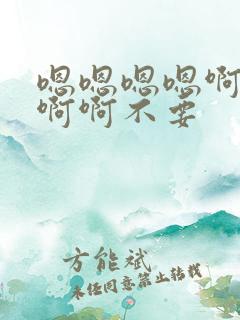 嗯嗯嗯嗯啊
啊啊不要
方能斌
未经同意禁止转载